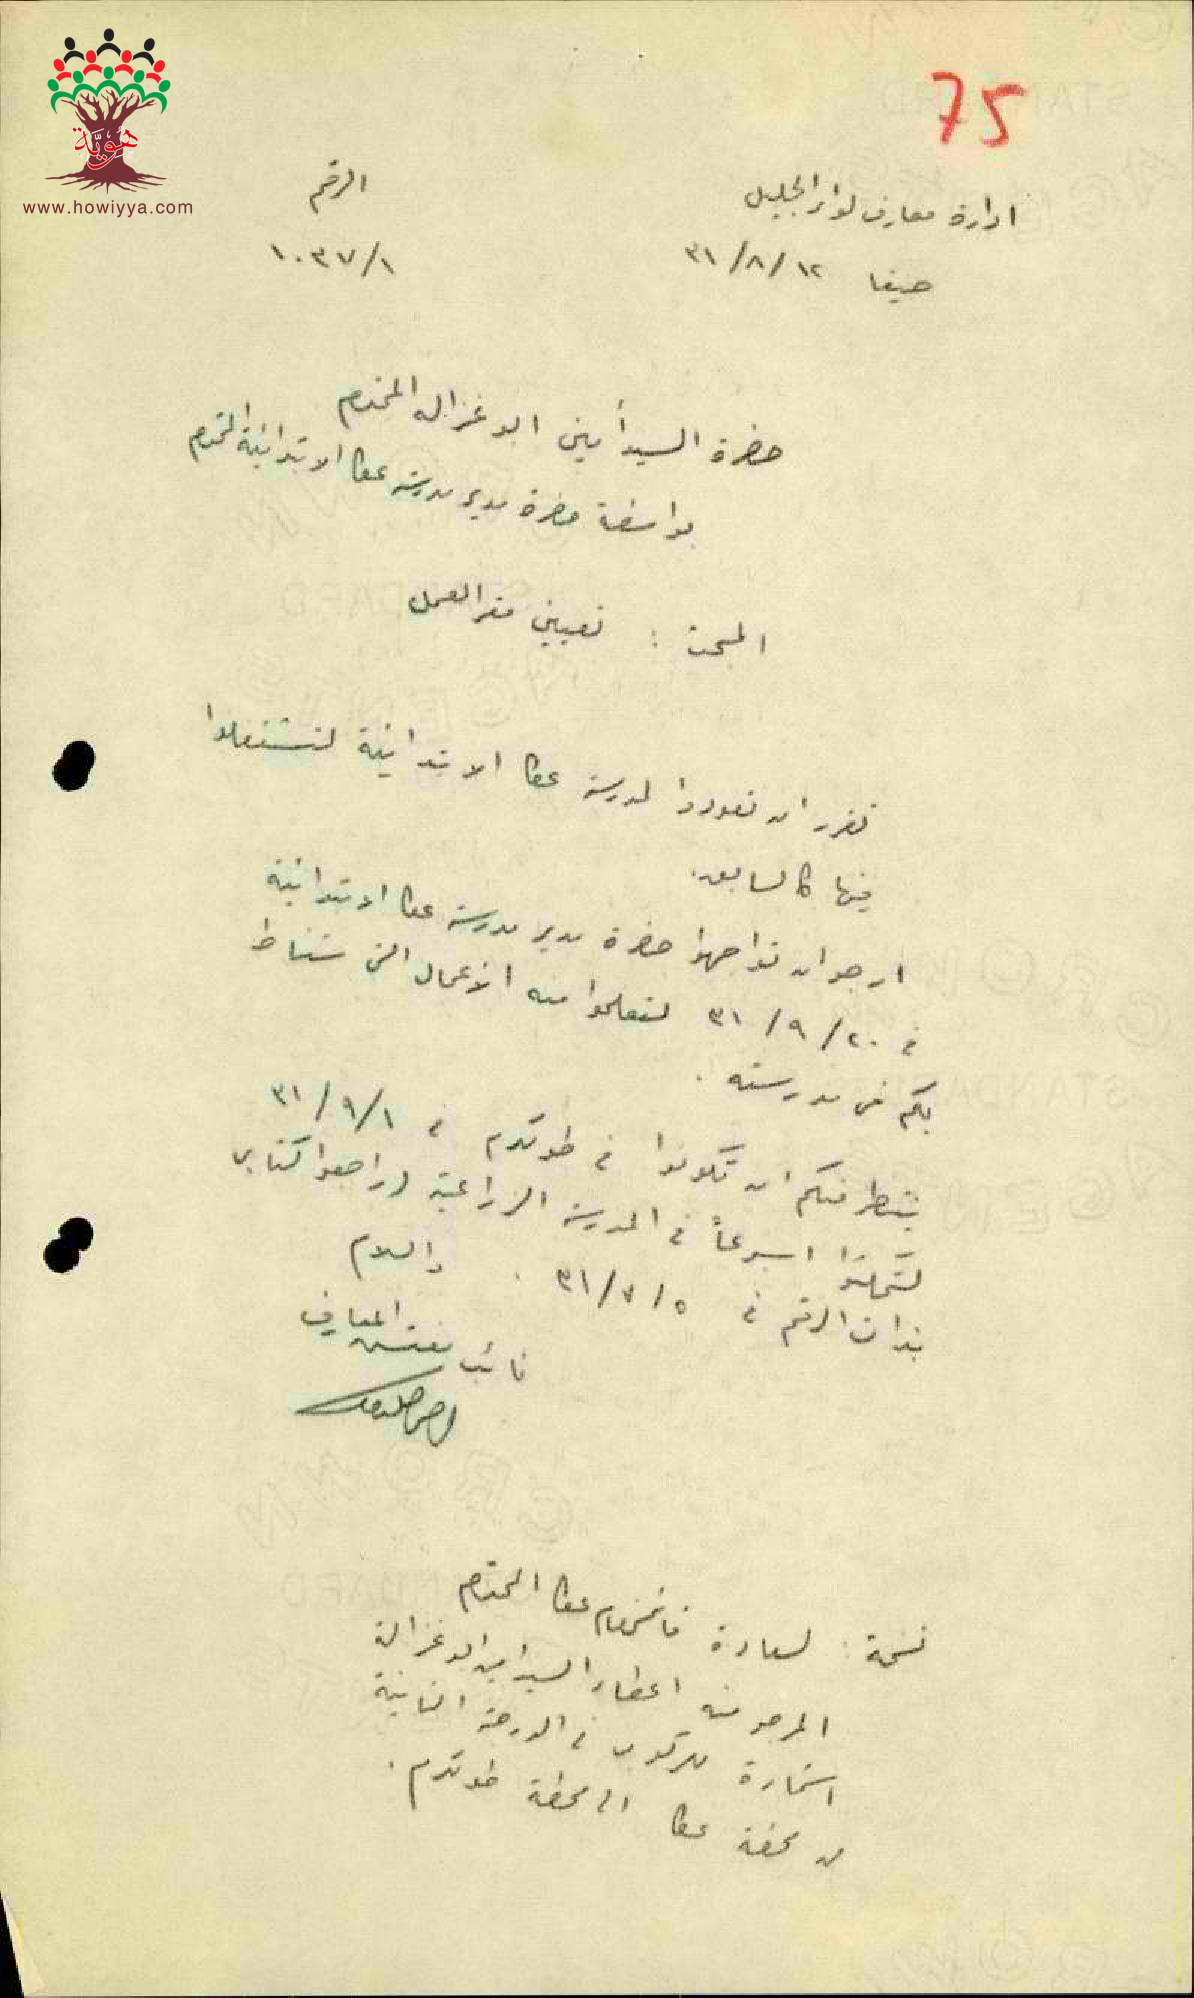 هَوِيَّة
www.howiyya.com
75
ادارة معارف لواء الجليل
الرقم
حيفا ١٢/٨/٣١
١٠٣٧/١
حضرة السيد أمين ابو غزاله المحترم
بواسطة حضرة مدير مدرسة عكا الابتدائية المحترم
المبحث : تعيين مقر العمل
تقرر ان تعودوا لمدرسة عكا الابتدائية لتشتغلوا
فيها كالسابق.
ارجو ان تواجهوا حضرة مدير مدرسة عكا الابتدائية
في ٢٠/٩/٣١ لتعلموا منه الأعمال التي ستناط
بكم في مدرسته .
ينتظر منكم ان تكونوا في طولكرم في ١/٩/٣١
اسبوعاً في المدرسة الزراعية راجعوا كتابي
بذات الرقم في ٥/٧/٣١ . والسلام
نائب مفتش المعارف
نسخة : لسعادة قائمقام عكا المحترم
المرجو منه اعطاء السيد امين ابو غزالة
استمارة للركوب في الدرجة الثانية
من محطة عكا الى محطة طولكرم .